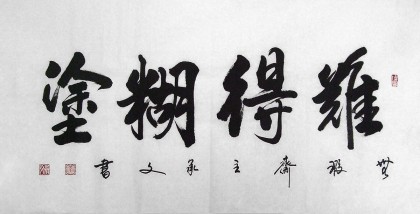 難得糊塗
無瑕齋主承文書